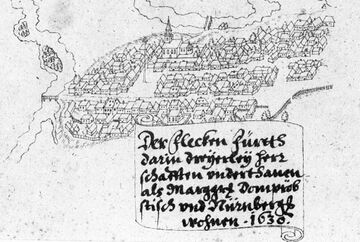 Der Flecken Fürth
darin dreyerley Herr
schafften underthanen
als Marggrf Dompröb
stisch und Nürnbergh
wohnen - 1630